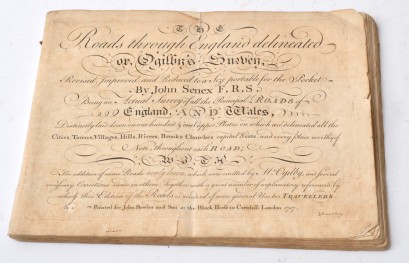 THE
Roads through England delineated
or, Ogilby's Survey,
Revised, Improved, and Reduced to a Size portable for the Pocket
By John Senex F.R.S.
Being an Actual Survey of all the Principal ROADS of
England, AND Wales,
Distinctly laid down on one hundred & one Copper Plates in which are delineated all the
Cities, Towns, Villages, Hills, Rivers, Brooks Churches capital Seats and every place worthy of
Note, throughout each ROAD;
WITH
The addition of some Roads newly drawn, which were omitted by Mr. Ogilby, and several
necessary Corrections made in others; Together with a great number of explanatory references, by
which this Edition of the Roads is rendered of more general Use to TRAVELLERS.
Printed for John Bowles and Son at the Black Horse in Cornhill London